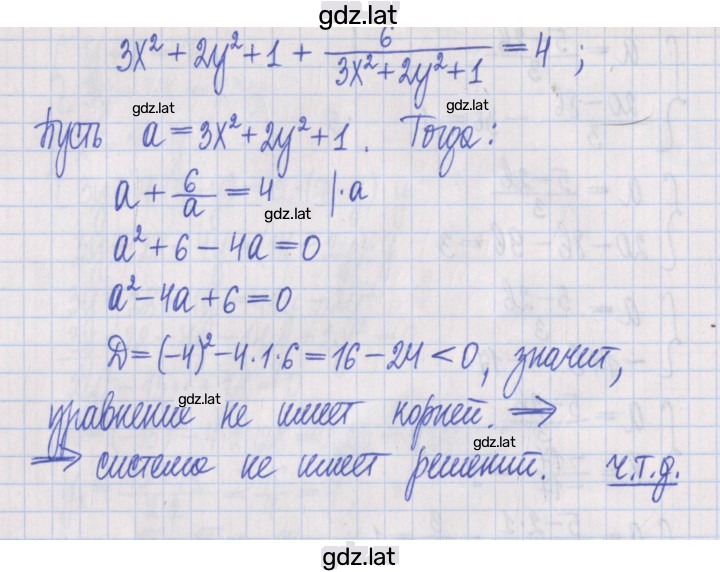 gdz.lat
3x² + 2y² + 1 + 6/(3x² + 2y² + 1) = 4 ;
gdz.lat
Пусть a = 3x² + 2y² + 1. Тогда:
a + 6/a = 4 |·a
gdz.lat
a² + 6 - 4a = 0
a² - 4a + 6 = 0
Д = (-4)² - 4·1·6 = 16 - 24 < 0, значит,
gdz.lat
уравнение не имеет корней. ⇒
gdz.lat
⇒ система не имеет решений. ч.т.д.
gdz.lat